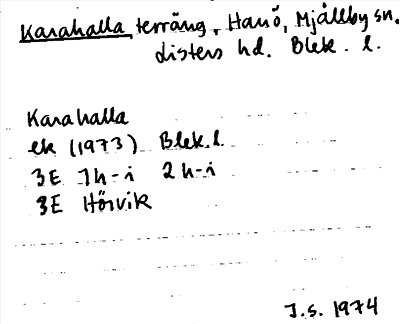 Karahalla, terräng, Hanö, Mjällby sn.
Listers hd. Blek. l.
Karahalla
ek (1973) Blek. l.
3E 1h-i 2h-i
3E Hörvik
J.S. 1974